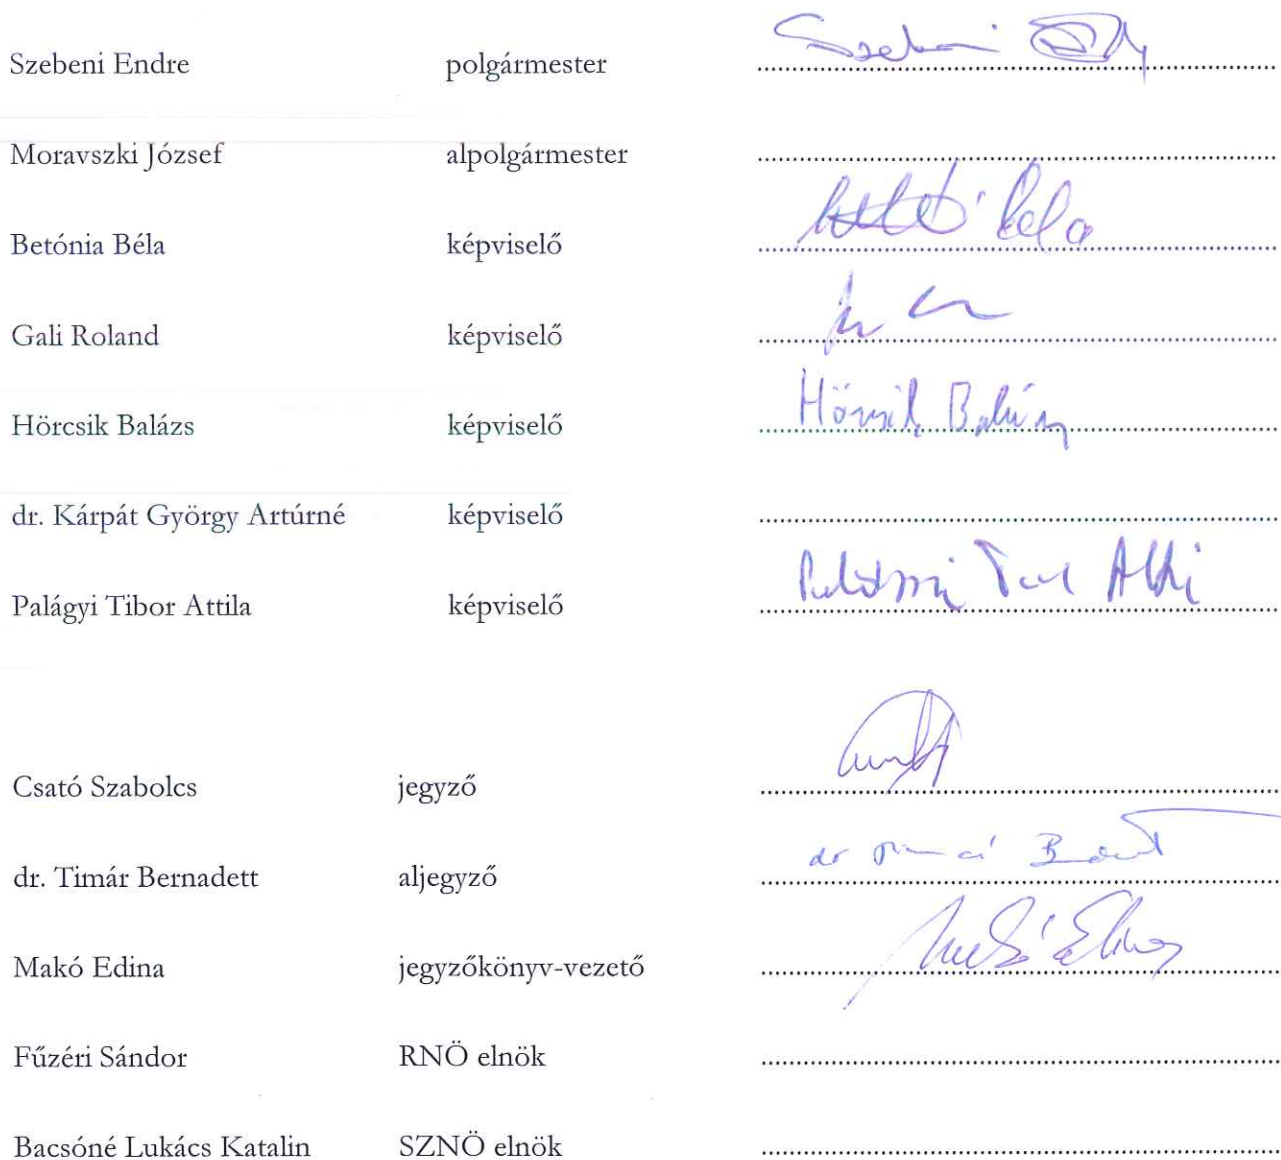 Szebeni Endre polgármester Szebeni
Moravszki József alpolgármester
Betónia Béla képviselő Béla
Gali Roland képviselő
Hörcsik Balázs képviselő Hörcsik Balázs
dr. Kárpát György Artúrné képviselő
Palágyi Tibor Attila képviselő
Csató Szabolcs jegyző
dr. Timár Bernadett aljegyző dr
Makó Edina jegyzőkönyv-vezető Makó Edina
Fűzéri Sándor RNÖ elnök
Bacsóné Lukács Katalin SZNÖ elnök